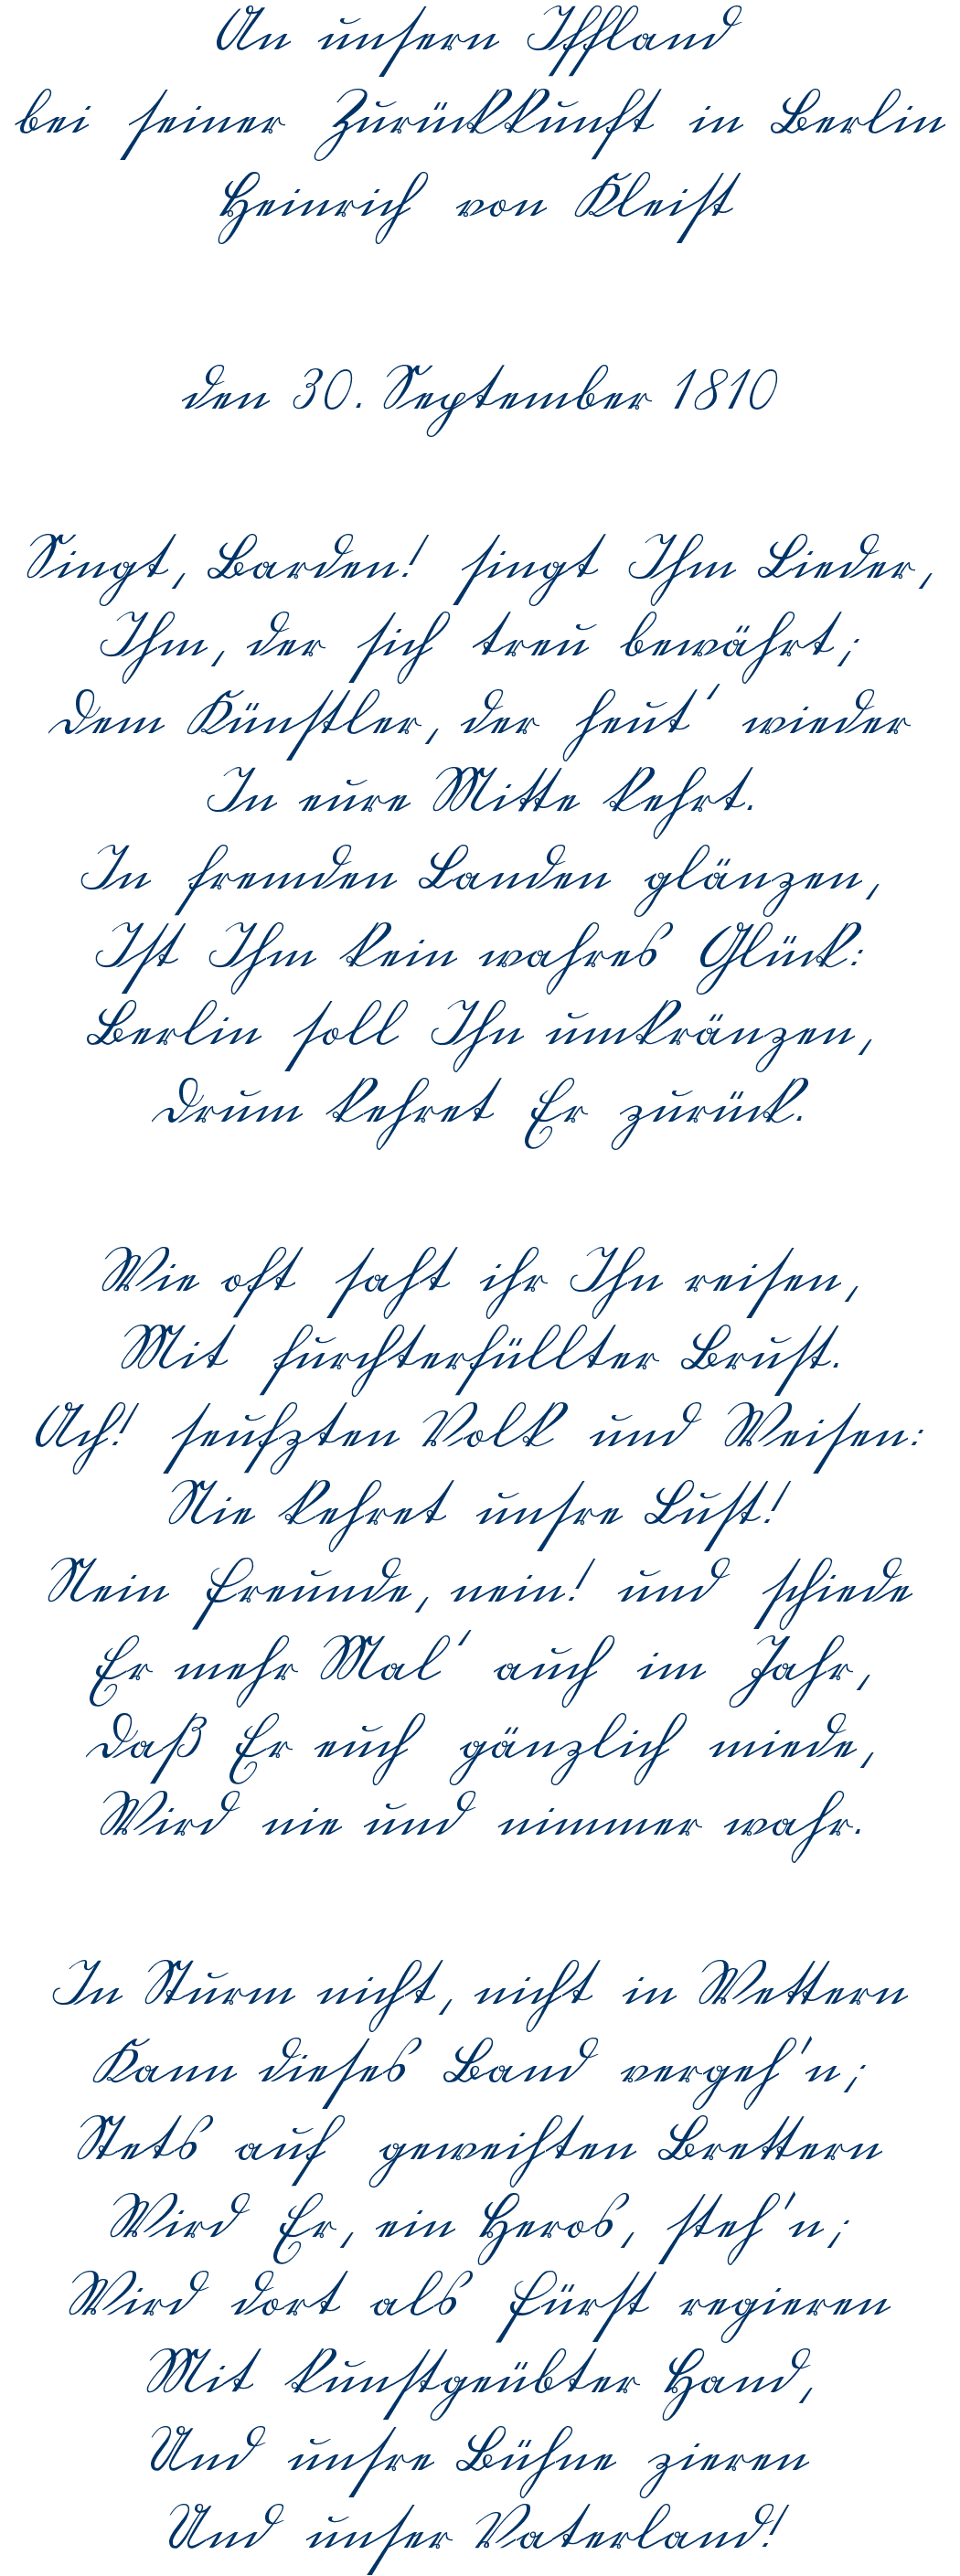 An unsern Iffland
bei seiner Zurückkunft in Berlin
Heinrich von Kleist
den 30. September 1810
Singt, Barden! singt Ihm Lieder,
Ihm, der sich treu bewährt;
Dem Künstler, der heut' wieder
In eure Mitte kehrt.
In fremden Landen glänzen,
Ist Ihm kein wahres Glück:
Berlin soll Ihn umkränzen,
Drum kehret Er zurück.
Wie oft saht ihr Ihn reisen,
Mit furchterfüllter Brust.
Ach! seufzten Volk und Weisen:
Nie kehret unsre Lust!
Nein Freunde, nein! und schiede
Er mehr Mal' auch im Jahr,
Daß Er euch gänzlich miede,
Wird nie und nimmer wahr.
In Sturm nicht, nicht in Wettern
Kann dieses Band vergeh'n;
Stets auf geweihten Brettern
Wird Er, ein Heros, steh'n;
Wird dort als Fürst regieren
Mit kunstgeübter Hand,
Und unsre Bühne zieren
Und unser Vaterland!